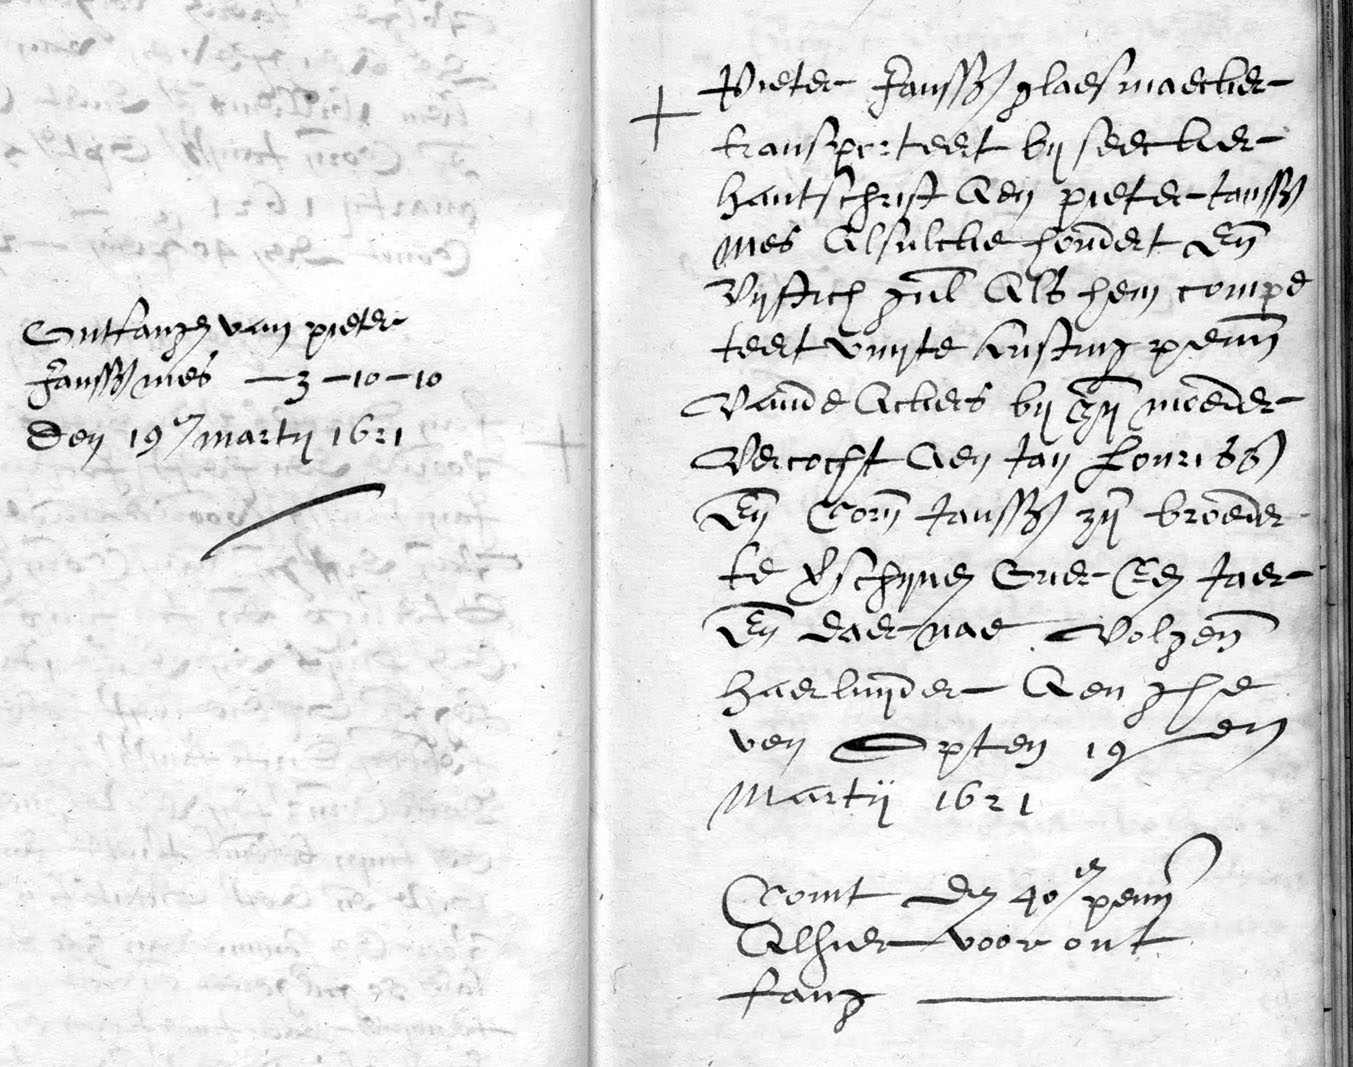 Ontfangen van pieter
Janssz mes — 3 – 10 – 10
den 19en martij 1621
Pieter Janssz glaesmaecker
transporteert bij seecker
hantschrift aen pieter Janssz
mes alsulcke hondert en
vijftich gul als hem compe
teert vuijte custing penn
vande ackers bij zijn moeder
vercocht aen Jan Lourissz
en Corn Janssz zijn broeder
te verschijnen over een Jaer
en daer nae volgen
haerluijder aen ghe
ven opten 19en
Martij 1621
Comt den 40en penn
alhier voor ont
fang